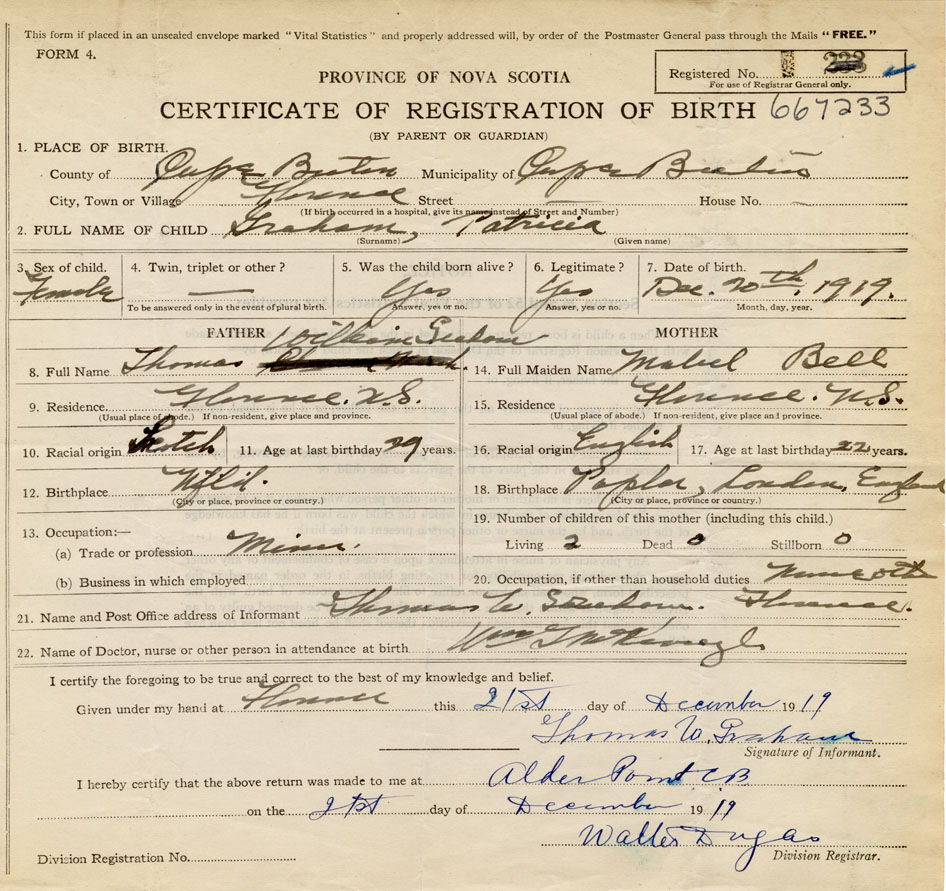 This form if placed in an unsealed envelope marked "Vital Statistics" and properly addressed will, by order of the Postmaster General pass through the Mails "FREE."
FORM 4.
PROVINCE OF NOVA SCOTIA
Registered No.
For use of Registrar General only.
CERTIFICATE OF REGISTRATION OF BIRTH 667233
(BY PARENT OR GUARDIAN)
1. PLACE OF BIRTH.
County of Cape Breton Municipality of Cape Breton
City, Town or Village Florence Street House No.
(If birth occurred in a hospital, give its name instead of Street and Number)
2. FULL NAME OF CHILD Graham, Patricia
(Surname) (Given name)
3. Sex of child. 4. Twin, triplet or other? 5. Was the child born alive? 6. Legitimate? 7. Date of birth.
Female — Yes Yes Dec. 20th, 1919.
To be answered only in the event of plural birth. Answer, yes or no. Answer, yes or no. Month, day, year.
FATHER MOTHER
8. Full Name Thomas William Graham 14. Full Maiden Name Mabel Bell
9. Residence Florence. N.S. 15. Residence Florence. N.S.
(Usual place of abode.) If non-resident, give place and province. (Usual place of abode.) If non-resident, give place and province.
10. Racial origin Scotch 11. Age at last birthday 29 years. 16. Racial origin English 17. Age at last birthday 22 years.
12. Birthplace Nfld. 18. Birthplace Poplar, London, England
(City or place, province or country.) (City or place, province or country.)
13. Occupation:— 19. Number of children of this mother (including this child.)
(a) Trade or profession Miner. Living 2 Dead 0 Stillborn 0
(b) Business in which employed 20. Occupation, if other than household duties
21. Name and Post Office address of Informant Thomas W. Graham. Florence.
22. Name of Doctor, nurse or other person in attendance at birth Wm
I certify the foregoing to be true and correct to the best of my knowledge and belief.
Given under my hand at Florence this 21st day of December 1919
Thomas W. Graham
Signature of Informant.
I hereby certify that the above return was made to me at Alder Point CB
on the 21st day of December 1919
Walter Dugas
Division Registrar.
Division Registration No.